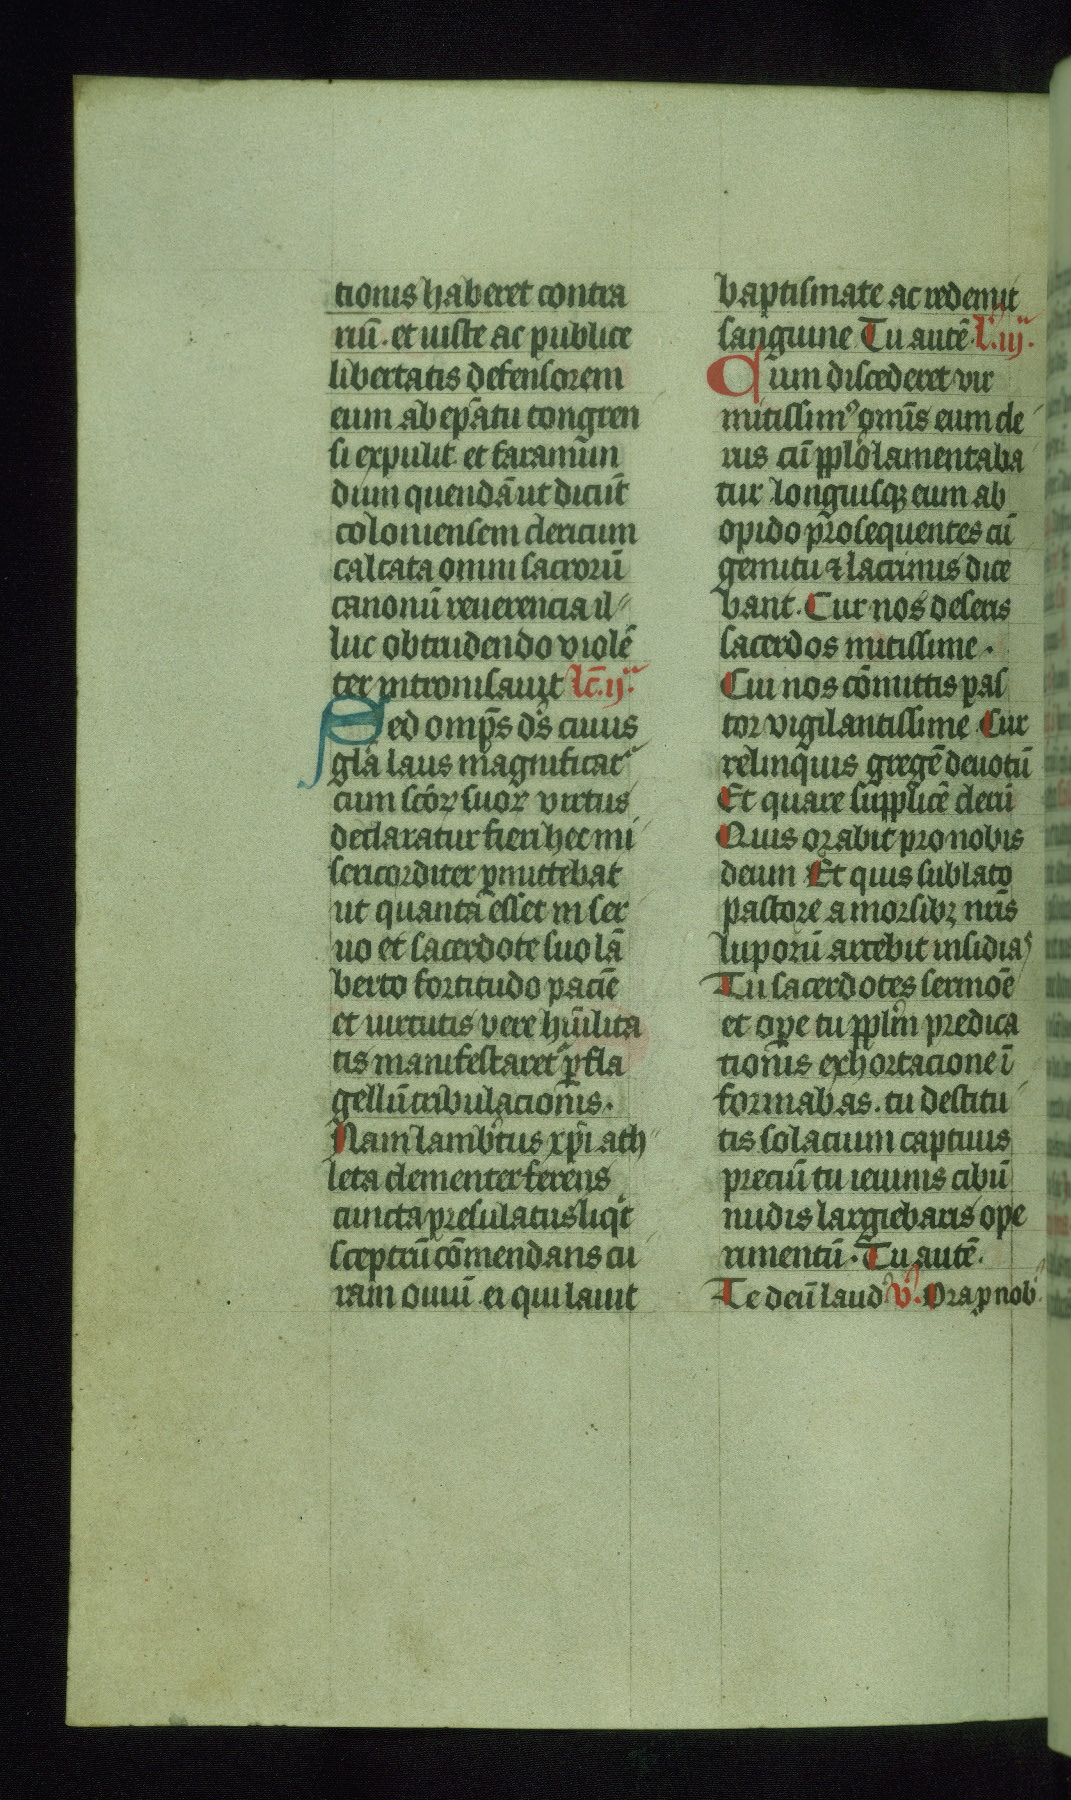 tionis haberet contra
riū. et iuste ac publice
libertatis defensorem
eum ab ep̄atu tongren
si expulit et faramūn
dum quendā ut dicūt
coloniensem clericum
calcata omni sacrorū
canonū reuerencia il
luc obtrudendo violē
ter intronisauit lc̄.ij.
Sed omp̄s ds̄ cuius
gl̄a laus magnificat᷑
cum sc̄oꝝ suoꝝ virtus
declaratur fieri hec mi
sericorditer ꝑmittebat
ut quanta esset in ser
uo et sacerdote suo lā
berto fortitudo paciē
et uirtutis vere hūilita
tis manifestaret᷑ ꝑ fla
gellū tribulacionis.
Nam lamb̄tus xp̄i ath
leta clementer ferens
cuncta presulatus liq̄t
sceptrū cōmendans cu
ram ouiū ei qui lauit
baptismate ac redemit
sanguine Tu autē l̄.iij.
Cum discederet vir
mitissimꝰ om̄is eum cle
rus cū pp̄lo lamentaba
tur longiusqꝫ eum ab
opido prosequentes cū
gemitu ⁊ lacrimis dice
bant. Cur nos deseris
sacerdos mitissime.
Cui nos cōmittis pas
tor vigilantissime Cur
relinquis gregē deuotū
Et quare supplicē clerū
Quis orabit pro nobis
deum Et quis sublato
pastore a morsibꝫ nr̄is
luporū arcebit insidias
Tu sacerdotes sermoē
et oꝑe tu pp̄lm predica
tionis exhortacione ī
formabas. tu destitu
tis solacium captiuis
preciū tu ieiunis cibū
nudis largiebaris ope
rimentū. Tu autē.
Te deū laud᷑ v̓. Ora ꝓ nob̄